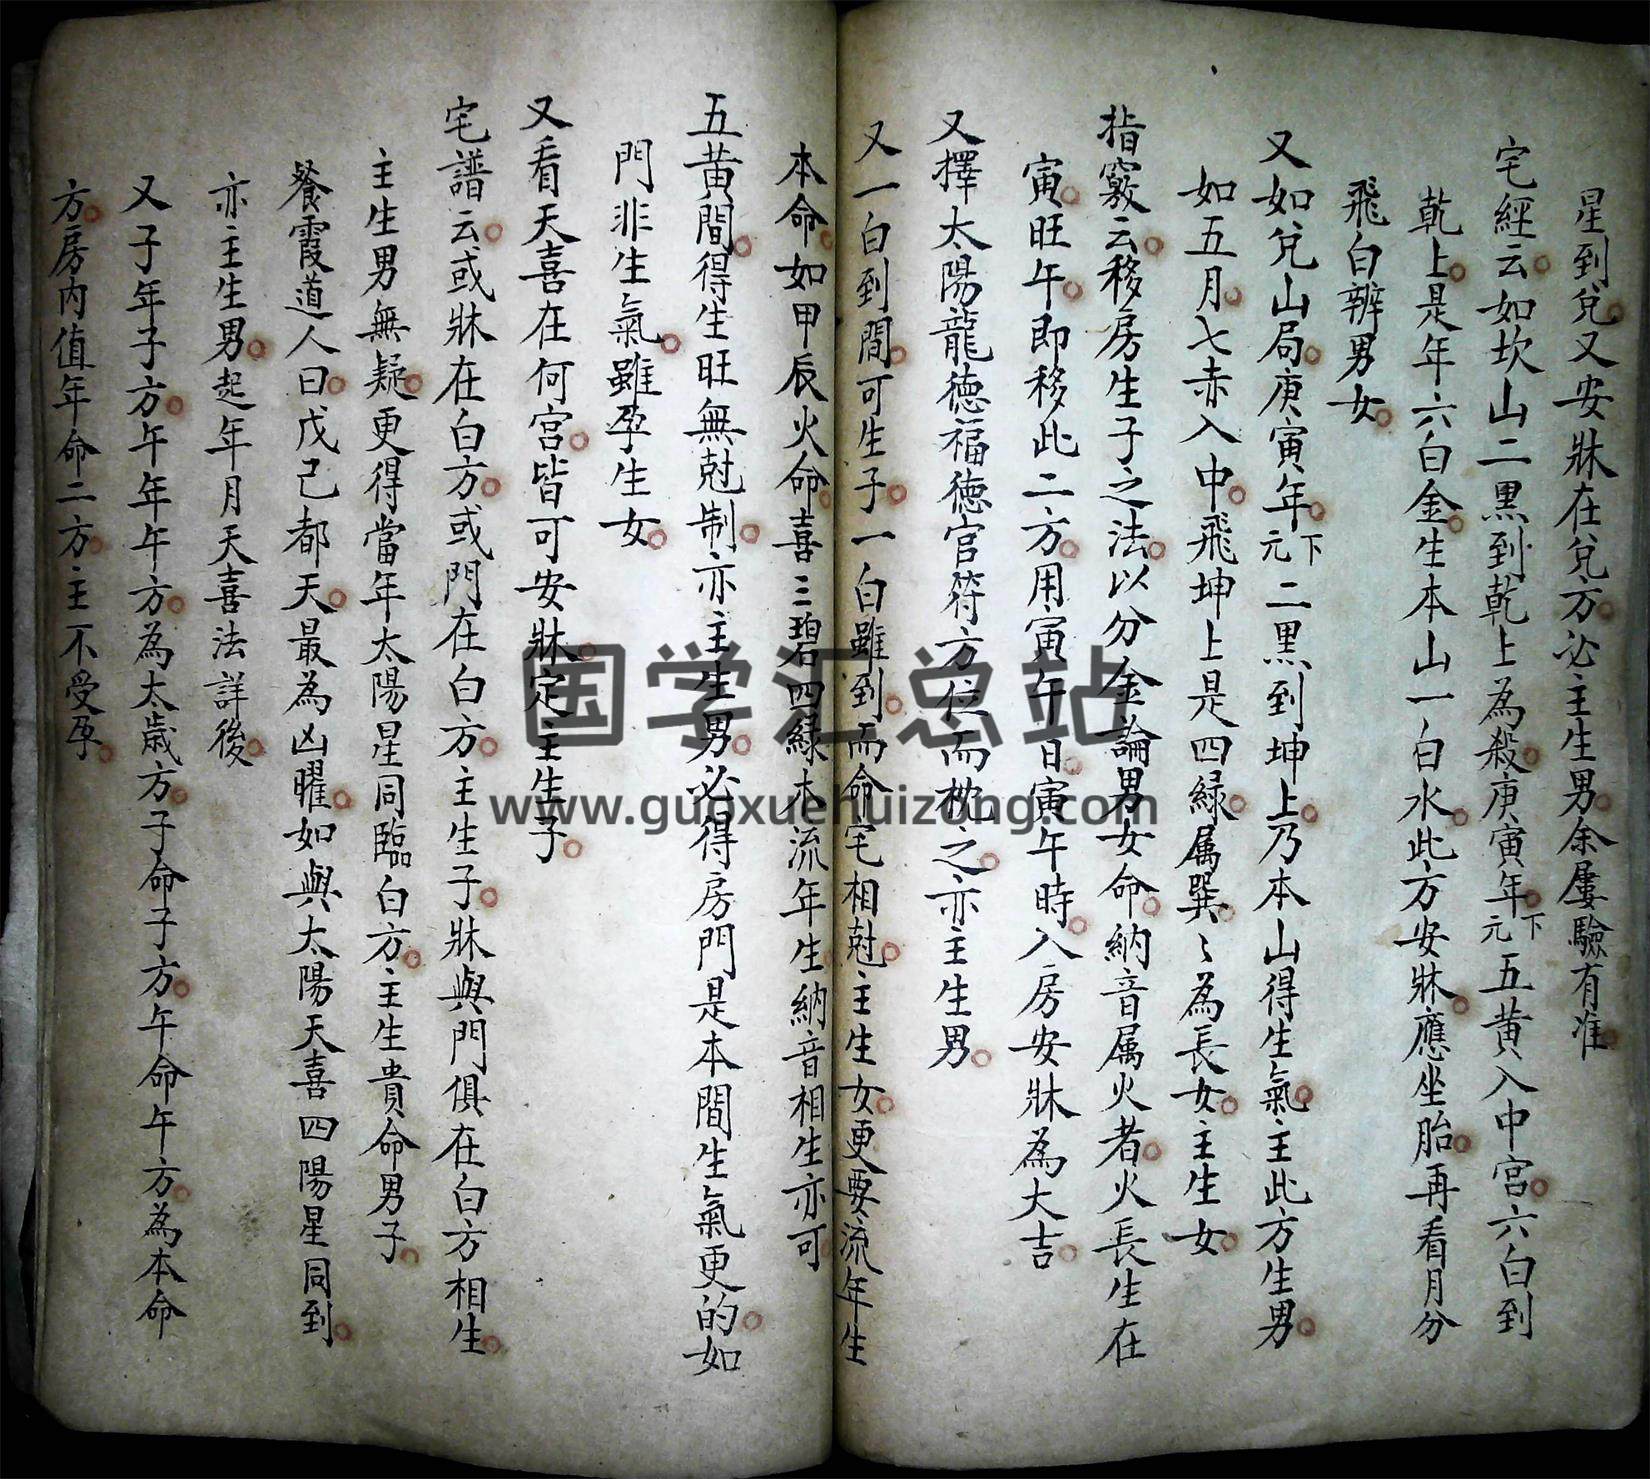 星到兌又安牀在兌方必主生男余屢驗有准
宅經云如坎山二黑到乾上為殺庚寅年下元五黃入中宮六白到
乾上是年六白金生本山一白水此方安牀應坐胎再看月分
飛白辨男女
又如兌山局庚寅年下元二黑到坤上乃本山得生氣主此方生男
如五月七赤入中飛坤上是四緑属巽〻為長女主生女
指竅云移房生子之法以分金論男女命納音属火者火長生在
寅旺午即移此二方用寅午日寅午時入房安牀為大吉
又擇太陽龍德福德官符方位而枕之亦主生男
又一白到間可生子一白雖到而命宅相尅主生女更要流年生
本命如甲辰火命喜三碧四緑木流年生納音相生亦可
五黃間得生旺無尅制亦主生男必得房門是本間生氣更的如
門非生氣雖孕生女
又看天喜在何宮皆可安牀定主生子
宅譜云或牀在白方或門在白方主生子牀與門俱在白方相生
主生男無疑更得當年太陽星同臨白方主生貴命男子
餐霞道人曰戊己都天最為凶曜如與太陽天喜四陽星同到
亦主生男起年月天喜法詳後
又子年子方午年午方為太歲方子命子方午命午方為本命
方房内值年命二方主不受孕
国学汇总站
www.guoxuehuizong.com